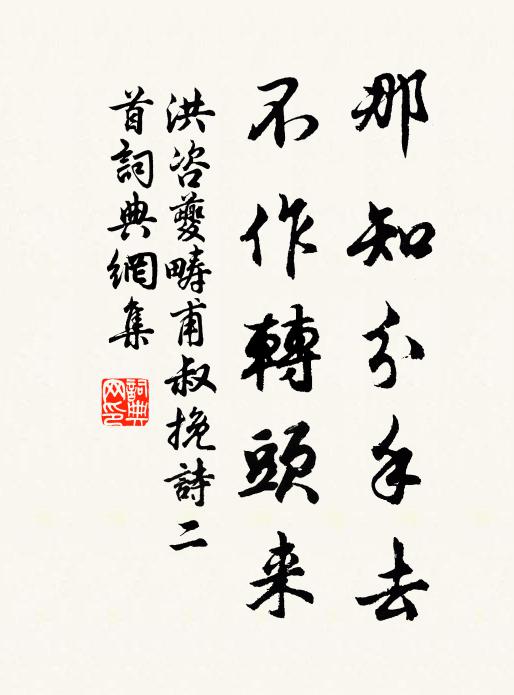 那知分手去
不作轉頭来
洪咨夔疇甫叔挽詩二
首詞典網集
詞典
网印